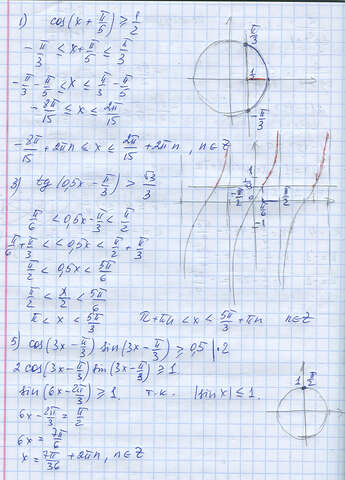 1) cos(x + π/5) ≥ 1/2
-π/3 ≤ x + π/5 ≤ π/3
-π/3 - π/5 ≤ x ≤ π/3 - π/5
-8π/15 ≤ x ≤ 2π/15
-8π/15 + 2πn ≤ x ≤ 2π/15 + 2πn, n∈Z
π/3
1/2
-π/3
3) tg(0,5x - π/3) > √3/3
π/6 < 0,5x - π/3 < π/2
π/6 + π/3 < 0,5x < π/2 + π/3
π/2 < 0,5x < 5π/6
π/2 < x/2 < 5π/6
π < x < 5π/3 π + πn < x < 5π/3 + πn n∈Z
1
-π/2 0 π/6 π/2
-1
5) cos(3x - π/3) sin(3x - π/3) ≥ 0,5 | · 2
2 cos(3x - π/3) sin(3x - π/3) ≥ 1
sin(6x - 2π/3) ≥ 1. т.к. |sin x| ≤ 1.
6x - 2π/3 = π/2
6x = 7π/6
x = 7π/36 + 2πn, n∈Z
1 π/2